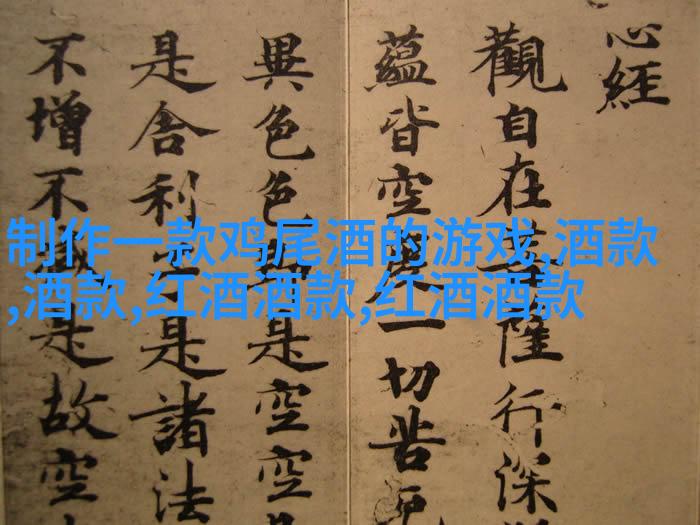 制作一款鸡尾酒的游戏,酒款
,酒款,红酒酒款,红酒酒款
心經
觀自在菩薩行深
蘊皆空度一切苦厄
異色色即是空空
是舍利子是諸法
不增不減是故空